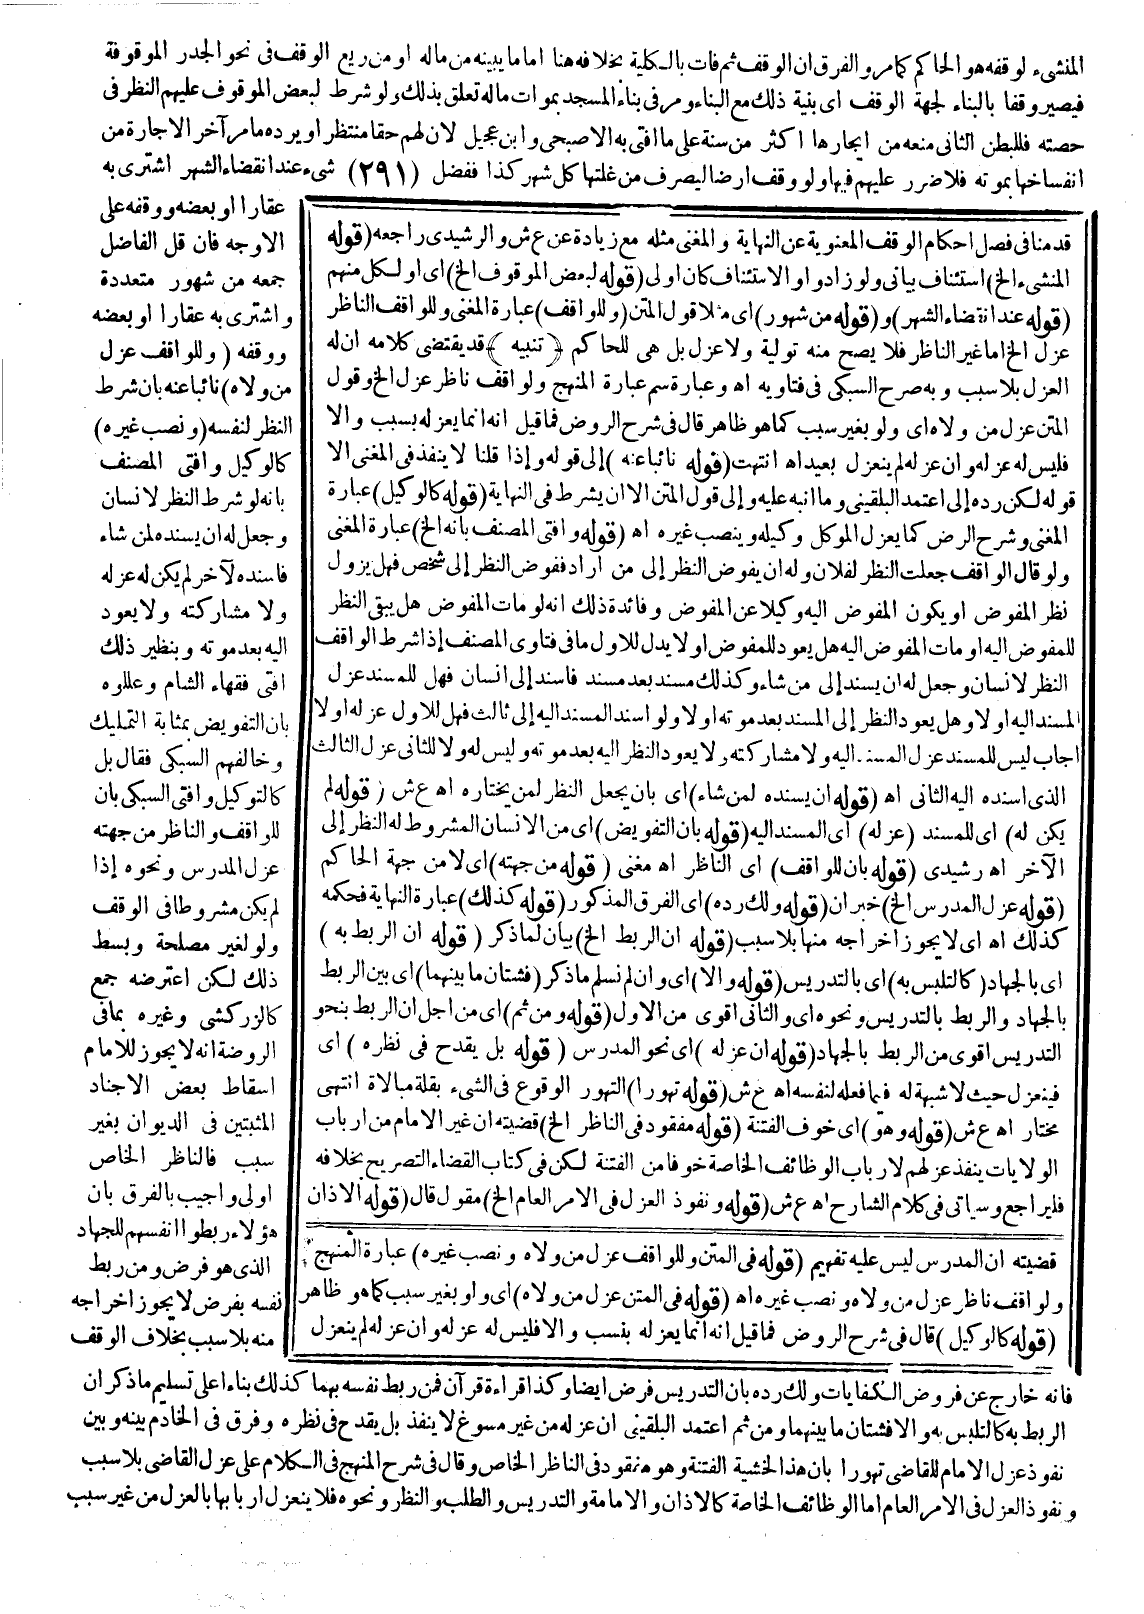 المنشىء لوقفه هو الحاكم كمامر والفرق ان الوقف ثم فات بالكلية بخلافه هنا اما ما يبنيه من ماله او من ريع الوقف فى نحو الجدر الموقوفة
فيصير وقفا بالبناء لجهة الوقف اى بنية ذلك مع البناء ومر فى بناء المسجد بموات ماله تعلق بذلك ولو شرط لبعض الموقوف عليهم النظر فى
حصته فللبطن الثانى منعه من ايجارها اكثر من سنة على ما افتى به الاصبحى وابن عجيل لان لهم حقا منتظرا ويرده ما مر آخر الاجارة من
انفساخها بموته فلا ضرر عليهم فيها ولو وقف ارضا ليصرف من غلتها كل شهر كذا ففضل (٢٩١) شىء عند انقضاء الشهر اشترى به
عقارا او بعضه ووقفه على
الاوجه فان قل الفاضل
جمعه من شهور متعددة
واشترى به عقارا او بعضه
ووقفه (وللواقف عزل
من ولاه) نائبا عنه بان شرط
النظر لنفسه (ونصب غيره)
كالوكيل وافتى المصنف
بانه لو شرط النظر لانسان
وجعل له ان يسنده لمن شاء
فاسنده لآخر لم يكن له عزله
ولا مشاركته ولا يعود
اليه بعد موته وبنظير ذلك
افتى فقهاء الشام وعللوه
بان التفويض بمثابة التمليك
وخالفهم السبكى فقال بل
كالتوكيل وافتى السبكى بان
للواقف والناظر من جهته
عزل المدرس ونحوه إذا
لم يكن مشروطا فى الوقف
ولو لغير مصلحة وبسط
ذلك لكن اعترضه جمع
كالزركشى وغيره بما فى
الروضة انه لا يجوز للامام
اسقاط بعض الاجناد
المثبتين فى الديوان بغير
سبب فالناظر الخاص
اولى واجيب بالفرق بان
هؤلاء ربطوا انفسهم للجهاد
الذى هو فرض ومن ربط
نفسه بفرض لا يجوز اخراجه
منه بلا سبب بخلاف الوقف
فانه خارج عن فروض الكفايات ولك رده بان التدريس فرض ايضا وكذا قراءة قرآن فمن ربط نفسه بهما كذلك بناءا على تسليم ماذكر ان
الربط به كالتلبس به والا فشتان ما بينهما ومن ثم اعتمد البلقينى ان عزله من غير مسوغ لا ينفذ بل يقدح فى نظره وفرق فى الخادم بينه وبين
نفوذ عزل الامام للقاضى تهورا بان هذا الخشية الفتنة وهو مفقود فى الناظر الخاص وقال فى شرح المنهج فى الكلام على عزل القاضى بلا سبب
ونفوذ العزل فى الامر العام اما الوظائف الخاصة كالاذان والامامة والتدريس والطلب والنظر ونحوه فلا ينعزل اربابها بالعزل من غير سبب
قدمنا فى فصل احكام الوقف المعنوية عن النهاية والمغنى مثله مع زيادة عن ع ش والرشيدى راجعه (قوله
المنشىء الخ) استئناف بيانى ولو زاد واو الاستئناف كان اولى (قوله لبعض الموقوف الخ) اى او لكل منهم
(قوله عند انقضاء الشهر) و(قوله من شهور) اى مثلا قول المتن (وللواقف) عبارة المغنى وللواقف الناظر
عزل الخ اما غير الناظر فلا يصح منه تولية ولا عزل بل هى للحاكم ﴿ تنبيه ﴾ قد يقتضى كلامه ان له
العزل بلا سبب وبه صرح السبكى فى فتاويه اه وعبارة سم عبارة المنهج ولواقف ناظر عزل الخ وقول
المتن عزل من ولاه اى ولو بغير سبب كما هو ظاهر قال فى شرح الروض فما قيل انه انما يعزله بسبب والا
فليس له عزله وان عزله لم ينعزل بعيد اه انتهت (قوله نائبا عنه) إلى قوله وإذا قلنا لا ينفذ فى المغنى الا
قوله لكن رده إلى اعتمد البلقينى وما انبه عليه وإلى قول المتن الا ان يشرط فى النهاية (قوله كالوكيل) عبارة
المغنى وشرح الرض كما يعزل الموكل وكيله وينصب غيره اه (قوله وافتى المصنف بانه الخ) عبارة المغنى
ولو قال الواقف جعلت النظر لفلان وله ان يفوض النظر إلى من اراد ففوض النظر إلى شخص فهل يزول
نظر المفوض او يكون المفوض اليه وكيلا عن المفوض وفائدة ذلك انه لو مات المفوض هل يبقى النظر
للمفوض اليه او مات المفوض اليه هل يعود للمفوض او لا يدل للاول ما فى فتاوى المصنف إذا شرط الواقف
النظر لانسان وجعل له ان يسند إلى من شاء وكذلك مسند بعد مسند فاسند إلى انسان فهل للمسند عزل
المسند اليه او لا وهل يعود النظر إلى المسند بعد موته او لا ولو اسند المسند اليه إلى ثالث فهل للاول عزله او لا
اجاب ليس للمسند عزل المسند اليه ولا مشاركته ولا يعود النظر اليه بعد موته وليس له ولا للثانى عزل الثالث
الذى اسنده اليه الثانى اه (قوله ان يسنده لمن شاء) اى بان يجعل النظر لمن يختاره اه ع ش (قوله لم
يكن له) اى للمسند (عزله) اى المسند اليه (قوله بان التفويض) اى من الانسان المشروط له النظر إلى
الآخر اه رشيدى (قوله بان للواقف) اى الناظر اه مغنى (قوله من جهته) اى لا من جهة الحاكم
(قوله عزل المدرس الخ) خبر ان (قوله ولك رده) اى الفرق المذكور (قوله كذلك) عبارة النهاية فحكمه
كذلك اه اى لا يجوز اخراجه منها بلا سبب (قوله ان الربط الخ) بيان لما ذكر (قوله ان الربط به)
اى بالجهاد (كالتلبس به) اى بالتدريس (قوله والا) اى وان لم نسلم ماذكر (فشتان ما بينهما) اى بين الربط
بالجهاد والربط بالتدريس ونحوه اى والثانى اقوى من الاول (قوله ومن ثم) اى من اجل ان الربط بنحو
التدريس اقوى من الربط بالجهاد (قوله ان عزله) اى نحو المدرس (قوله بل يقدح فى نظره) اى
فينعزل حيث لا شبهة له فيما فعله لنفسه اه ع ش (قوله تهورا) التهور الوقوع فى الشىء بقلة مبالاة انتهى
مختار اه ع ش (قوله وهو) اى خوف الفتنة (قوله مفقود فى الناظر الخ) قضيته ان غير الامام من ارباب
الولايات ينفذ عزلهم لارباب الوظائف الخاصة خوفا من الفتنة لكن فى كتاب القضاء التصريح بخلافه
فليراجع وسياتى فى كلام الشارح اه ع ش (قوله ونفوذ العزل فى الامر العام الخ) مقول قال (قوله الاذان
قضيته ان المدرس ليس عليه تفهيم (قوله فى المتن وللواقف عزل من ولاه ونصب غيره) عبارة المنهج
ولواقف ناظر عزل من ولاه ونصب غيره اه (قوله فى المتن عزل من ولاه) اى ولو بغير سبب كما هو ظاهر
(قوله كالوكيل) قال فى شرح الروض فما قيل انه انما يعزله بفسب والا فليس له عزله وان عزله لم ينعزل